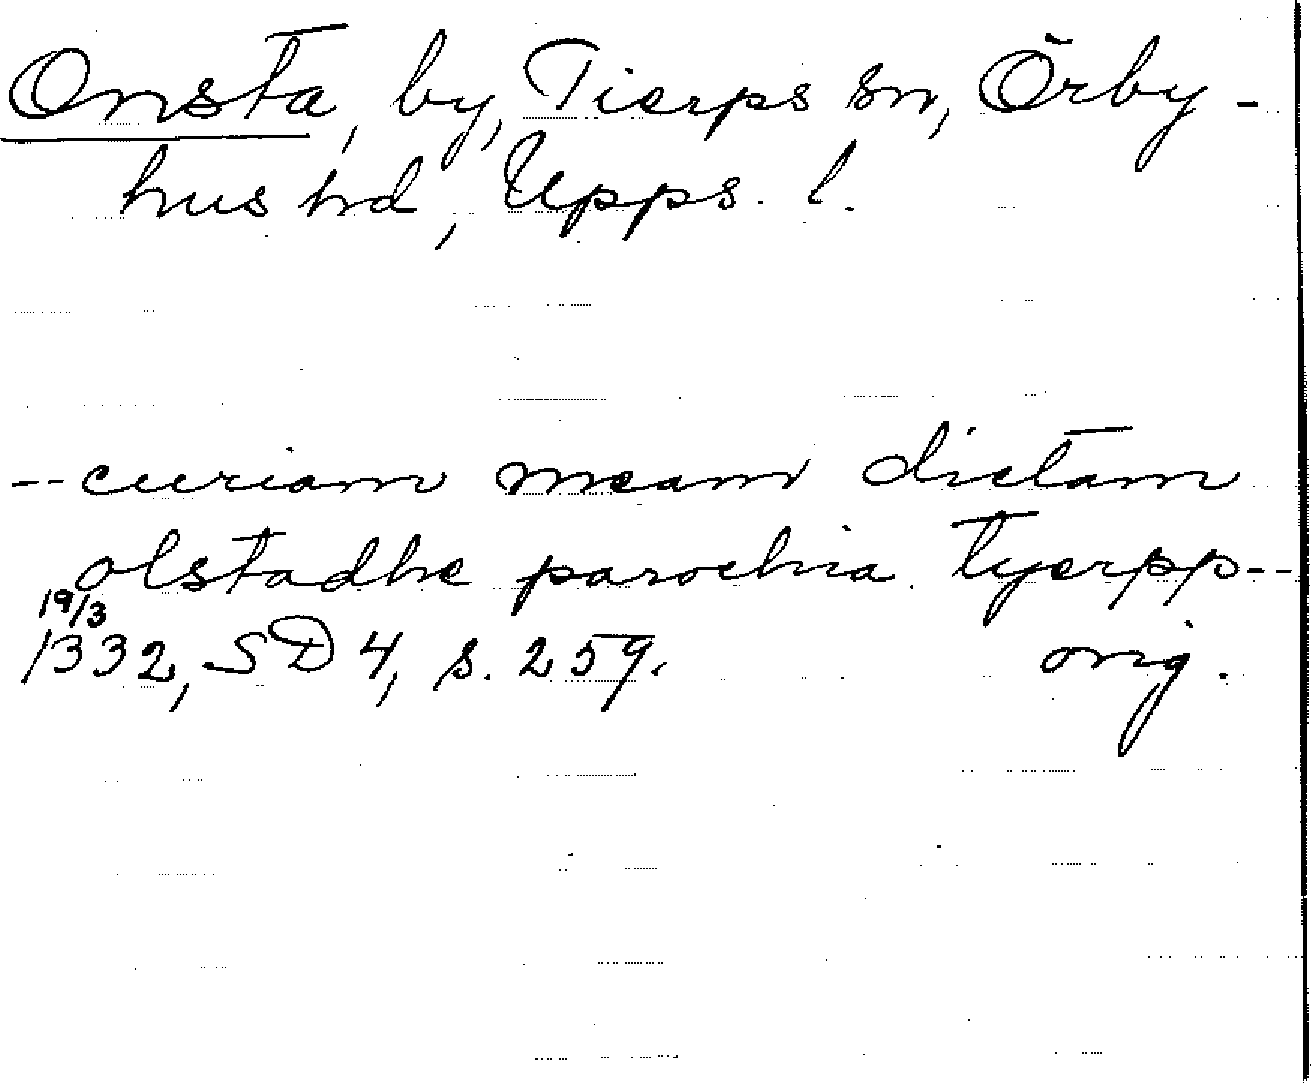 Onsta, by, Tierps sn, Örby-
hus hd, Upps. l.
--curiam meam dictam
olstadhe parochia tyerpp--
19/3
1332, SD 4, s. 259. orig.